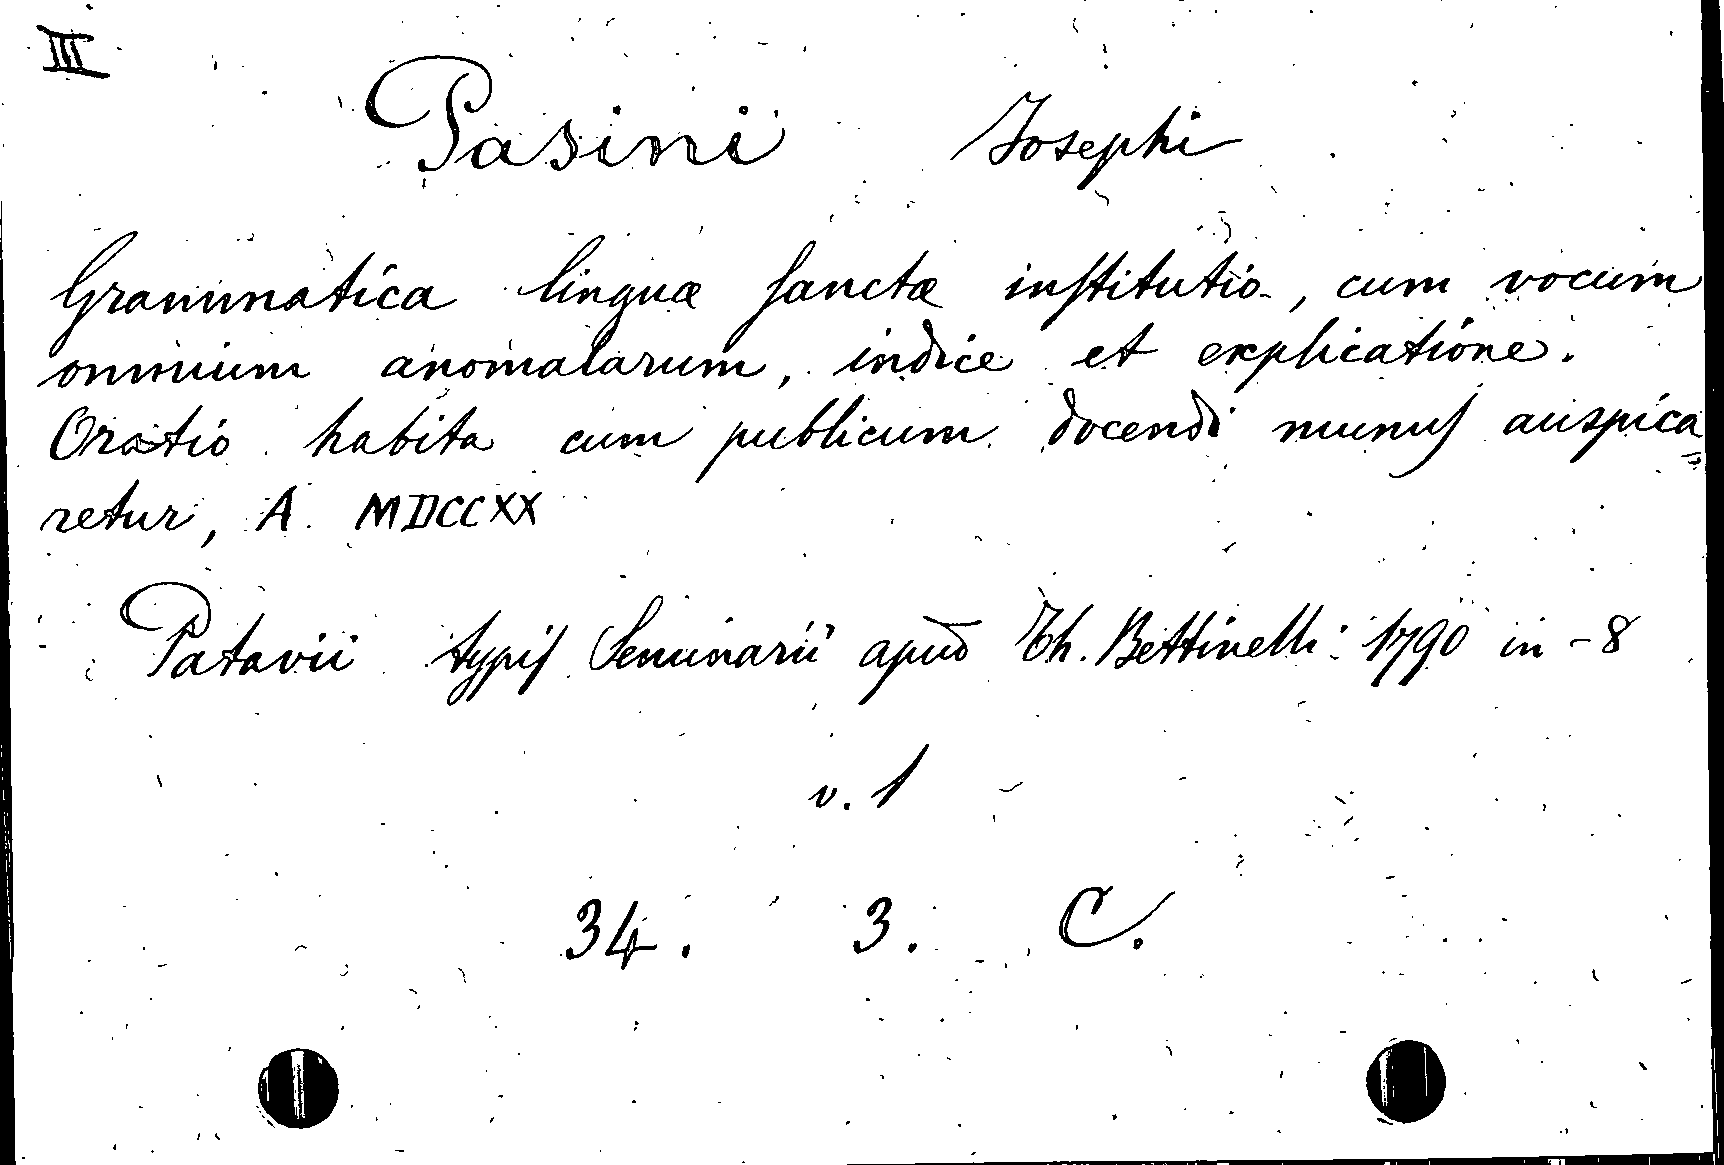 III
Pasini Josephi
Grammatica linguæ sanctæ institutio, cum vocum
omnium anomalarum, indice et explicatione.
Oratio habita cum publicum docendi munus auspica=
retur, A. MDCCXX
Patavii typis Seminarii apud Th. Bettinelli 1790 in-8
v. 1
34. 3. C.